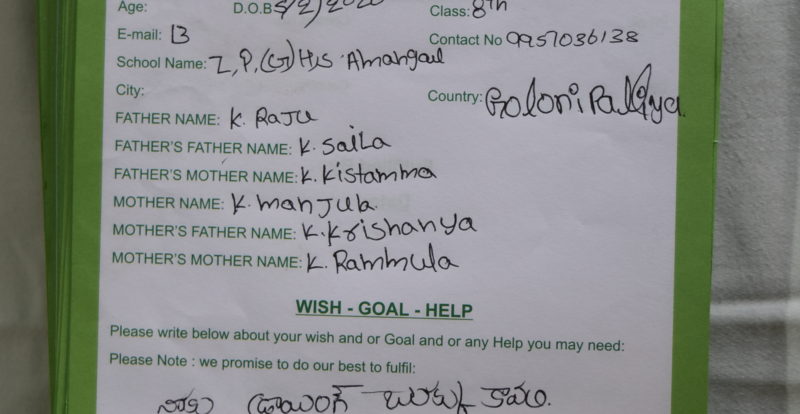 Age: D.O.B 5/2/2020 Class: 8th
E-mail: B Contact No 9957036138
School Name: Z,P,(G)H,S Amangal
City: Country:
FATHER NAME: K. RAJU
FATHER'S FATHER NAME: K. Saila
FATHER'S MOTHER NAME: K. Kistamma
MOTHER NAME: K. manjula
MOTHER'S FATHER NAME: K. Krishanya
MOTHER'S MOTHER NAME: K. Rammula
WISH - GOAL - HELP
Please write below about your wish and or Goal and or any Help you may need:
Please Note : we promise to do our best to fulfil:
నాకు డ్రాయింగ్ బుక్ కావాలి.